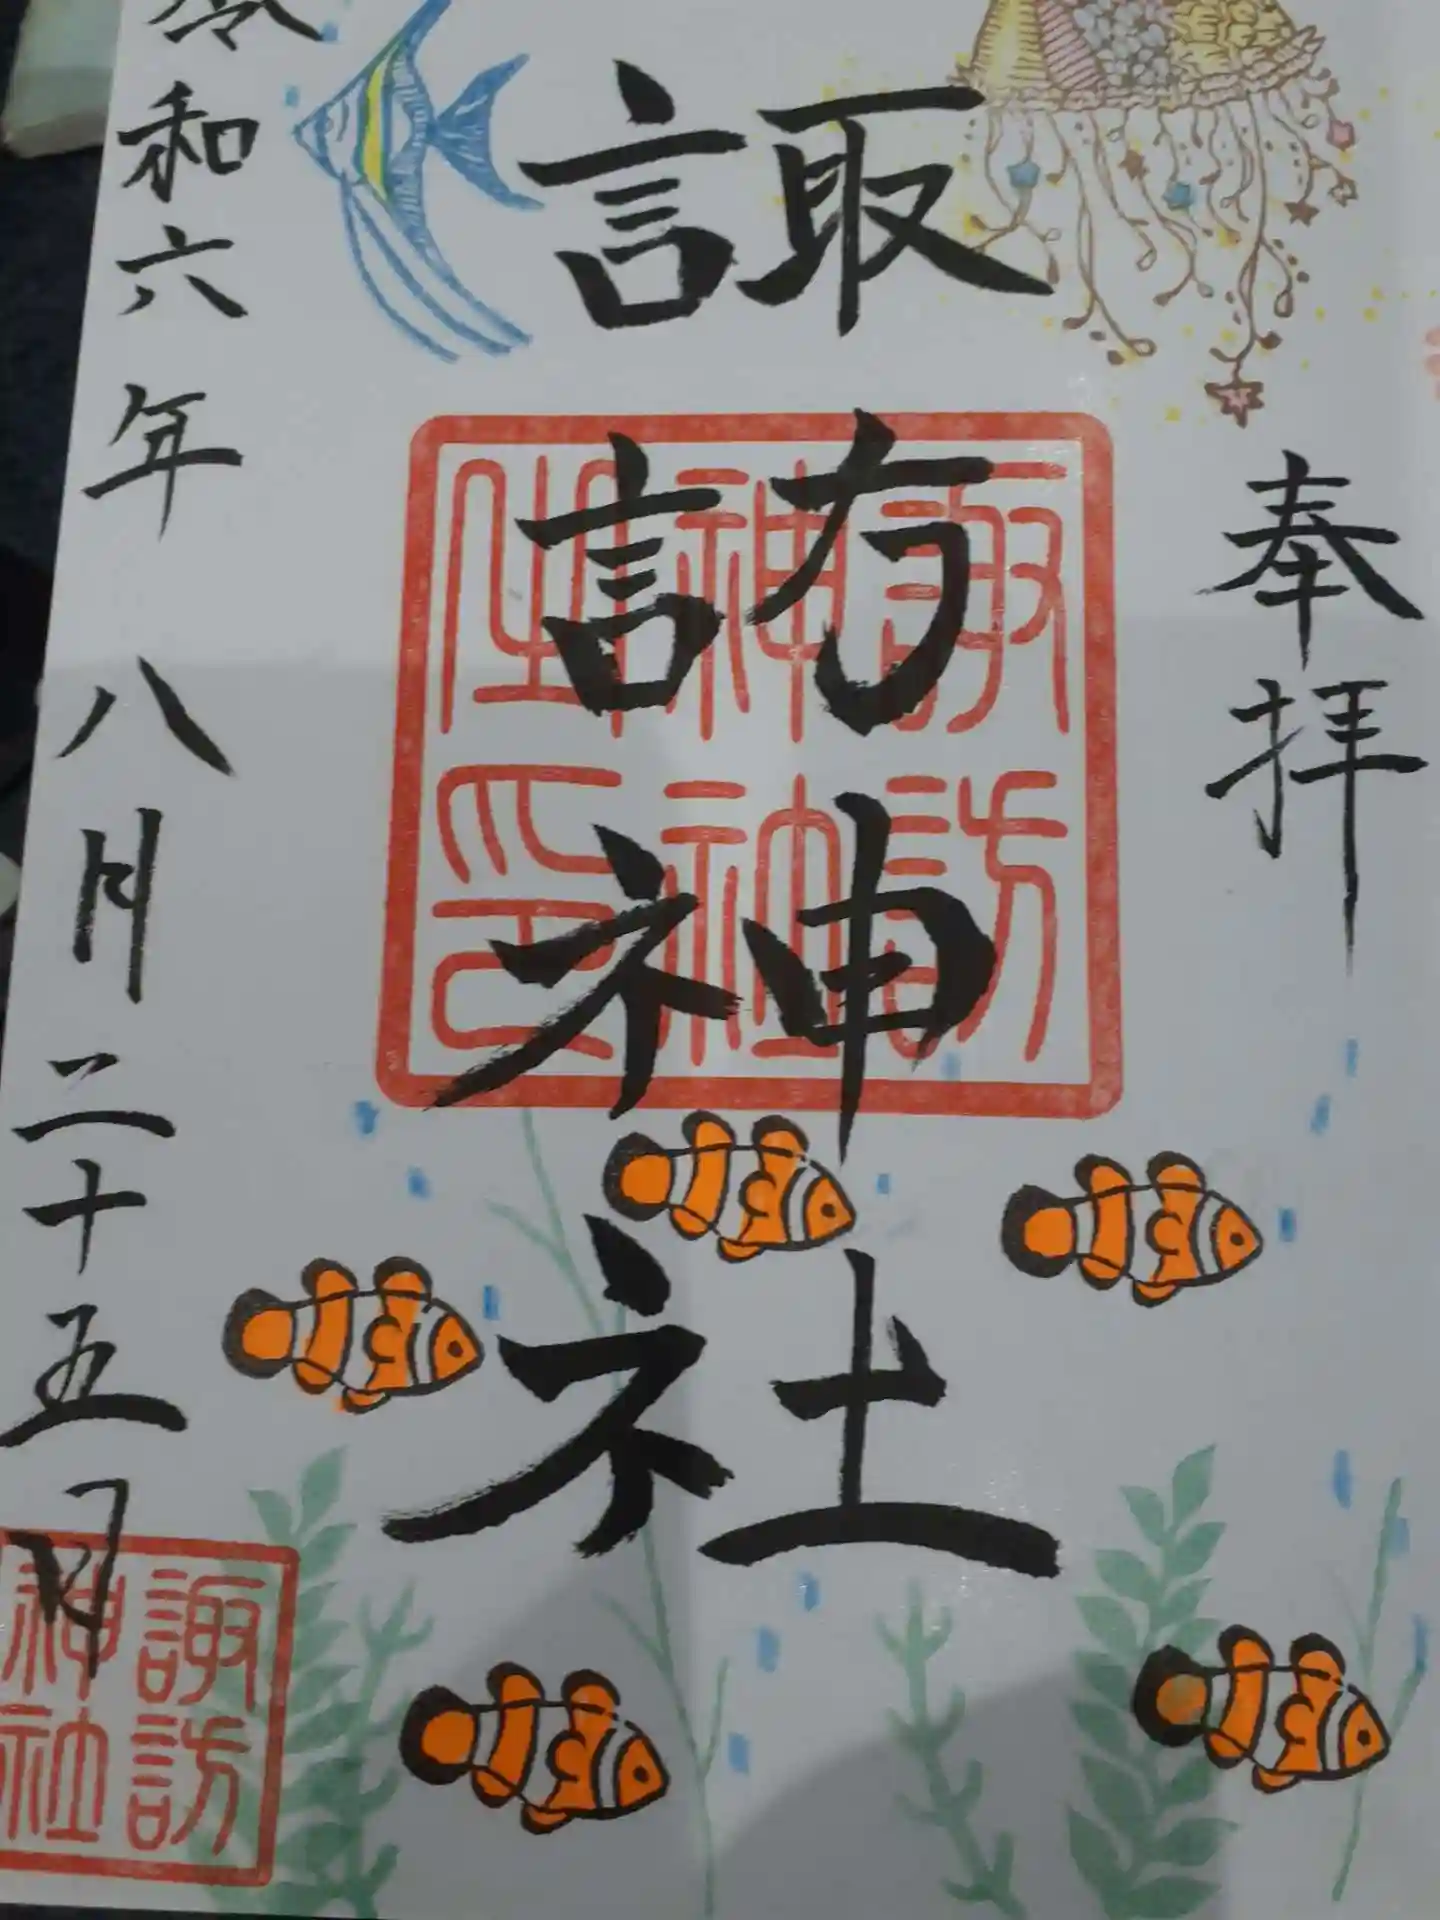 奉拝
諏訪神社
諏訪
神社
之印
令和六年八月二十五日
諏訪
神社